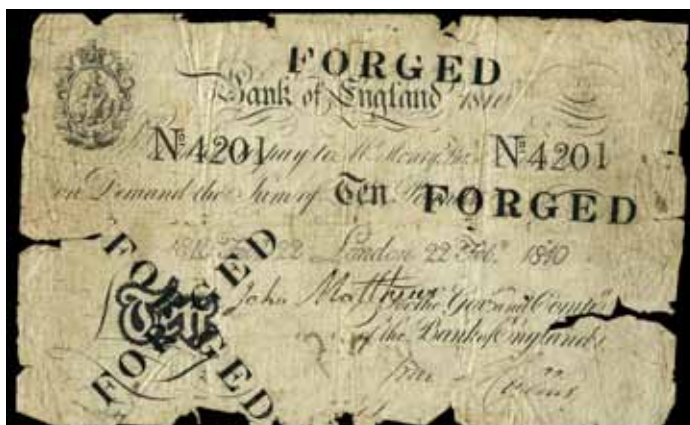 FORGED
Bank of England 1810
Nº 4201 pay to Mr. Nº 4201
on Demand the Sum of Ten FORGED
22 London 22 Feb.y 1810
FORGED
John Matthews for the Gov.r and Comp.a
Ten
of the Bank of England
FORGED